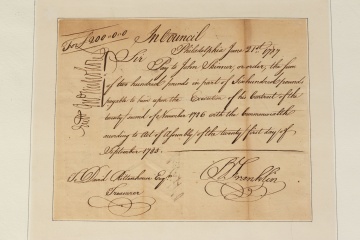 For £200-0-0
In Council
Philadelphia June 21st 1787
Sir
Pay to John Skinner, or order, the sum
of two hundred pounds in part of Six hundred pounds
payable to him upon the Execution of his Contract of the
twenty second of November 1786 with the Commonwealth
according to Act of Assembly of the twenty first day of
September 1785.
To David Rittenhouse Esqr.
Treasurer
B Franklin